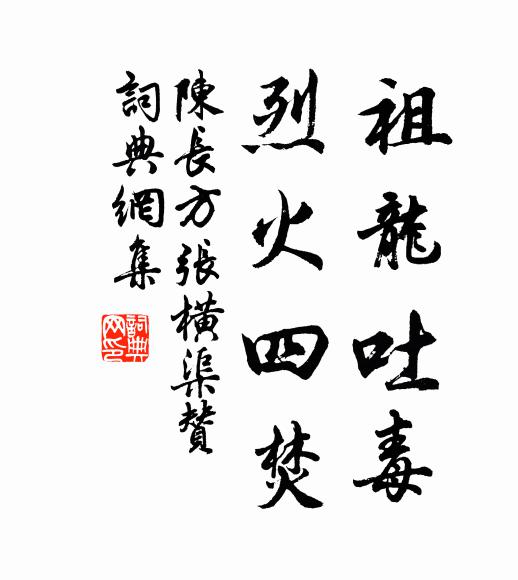 祖龍吐毒
烈火四焚
陳長方張橫渠贊
詞典網集
詞典
网印